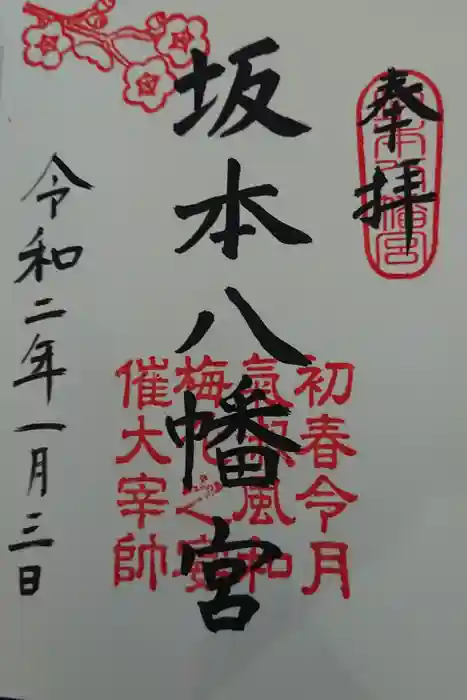 奉拝
坂本八幡宮
初春令月
氣淑風和
梅花之宴
催大宰帥
令和二年一月三日